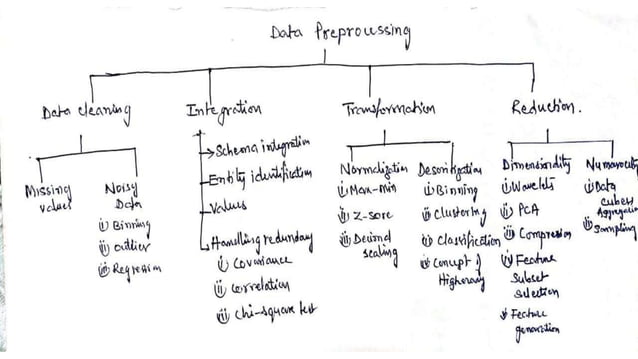 Data Preproussing
Data cleaning
Integration
Transformation
Reduction.
Missing
values
Noisy
Data
i) Binning
ii) outlier
iii) Regression
Schema integration
Entity identification
Values
Handling redundany
i) Covariance
ii) correlation
iii) chi-square test
Normalization
i) Max-min
ii) Z-sore
iii) Decimal
scaling
i) Binning
ii) Clustering
iii) Classification
iv) Concept
i) Wavelets
ii) PCA
iii) Compression
iv) Feature
Subset
selection
v) Feature
generation
i) Data
cubes
Aggregation
ii) Sampling